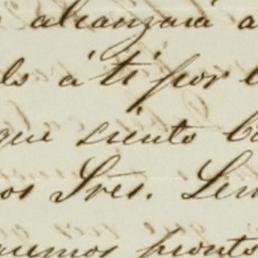 alcanzará a
á ti por l
que siento
os Sres. Ler
uemos pronto